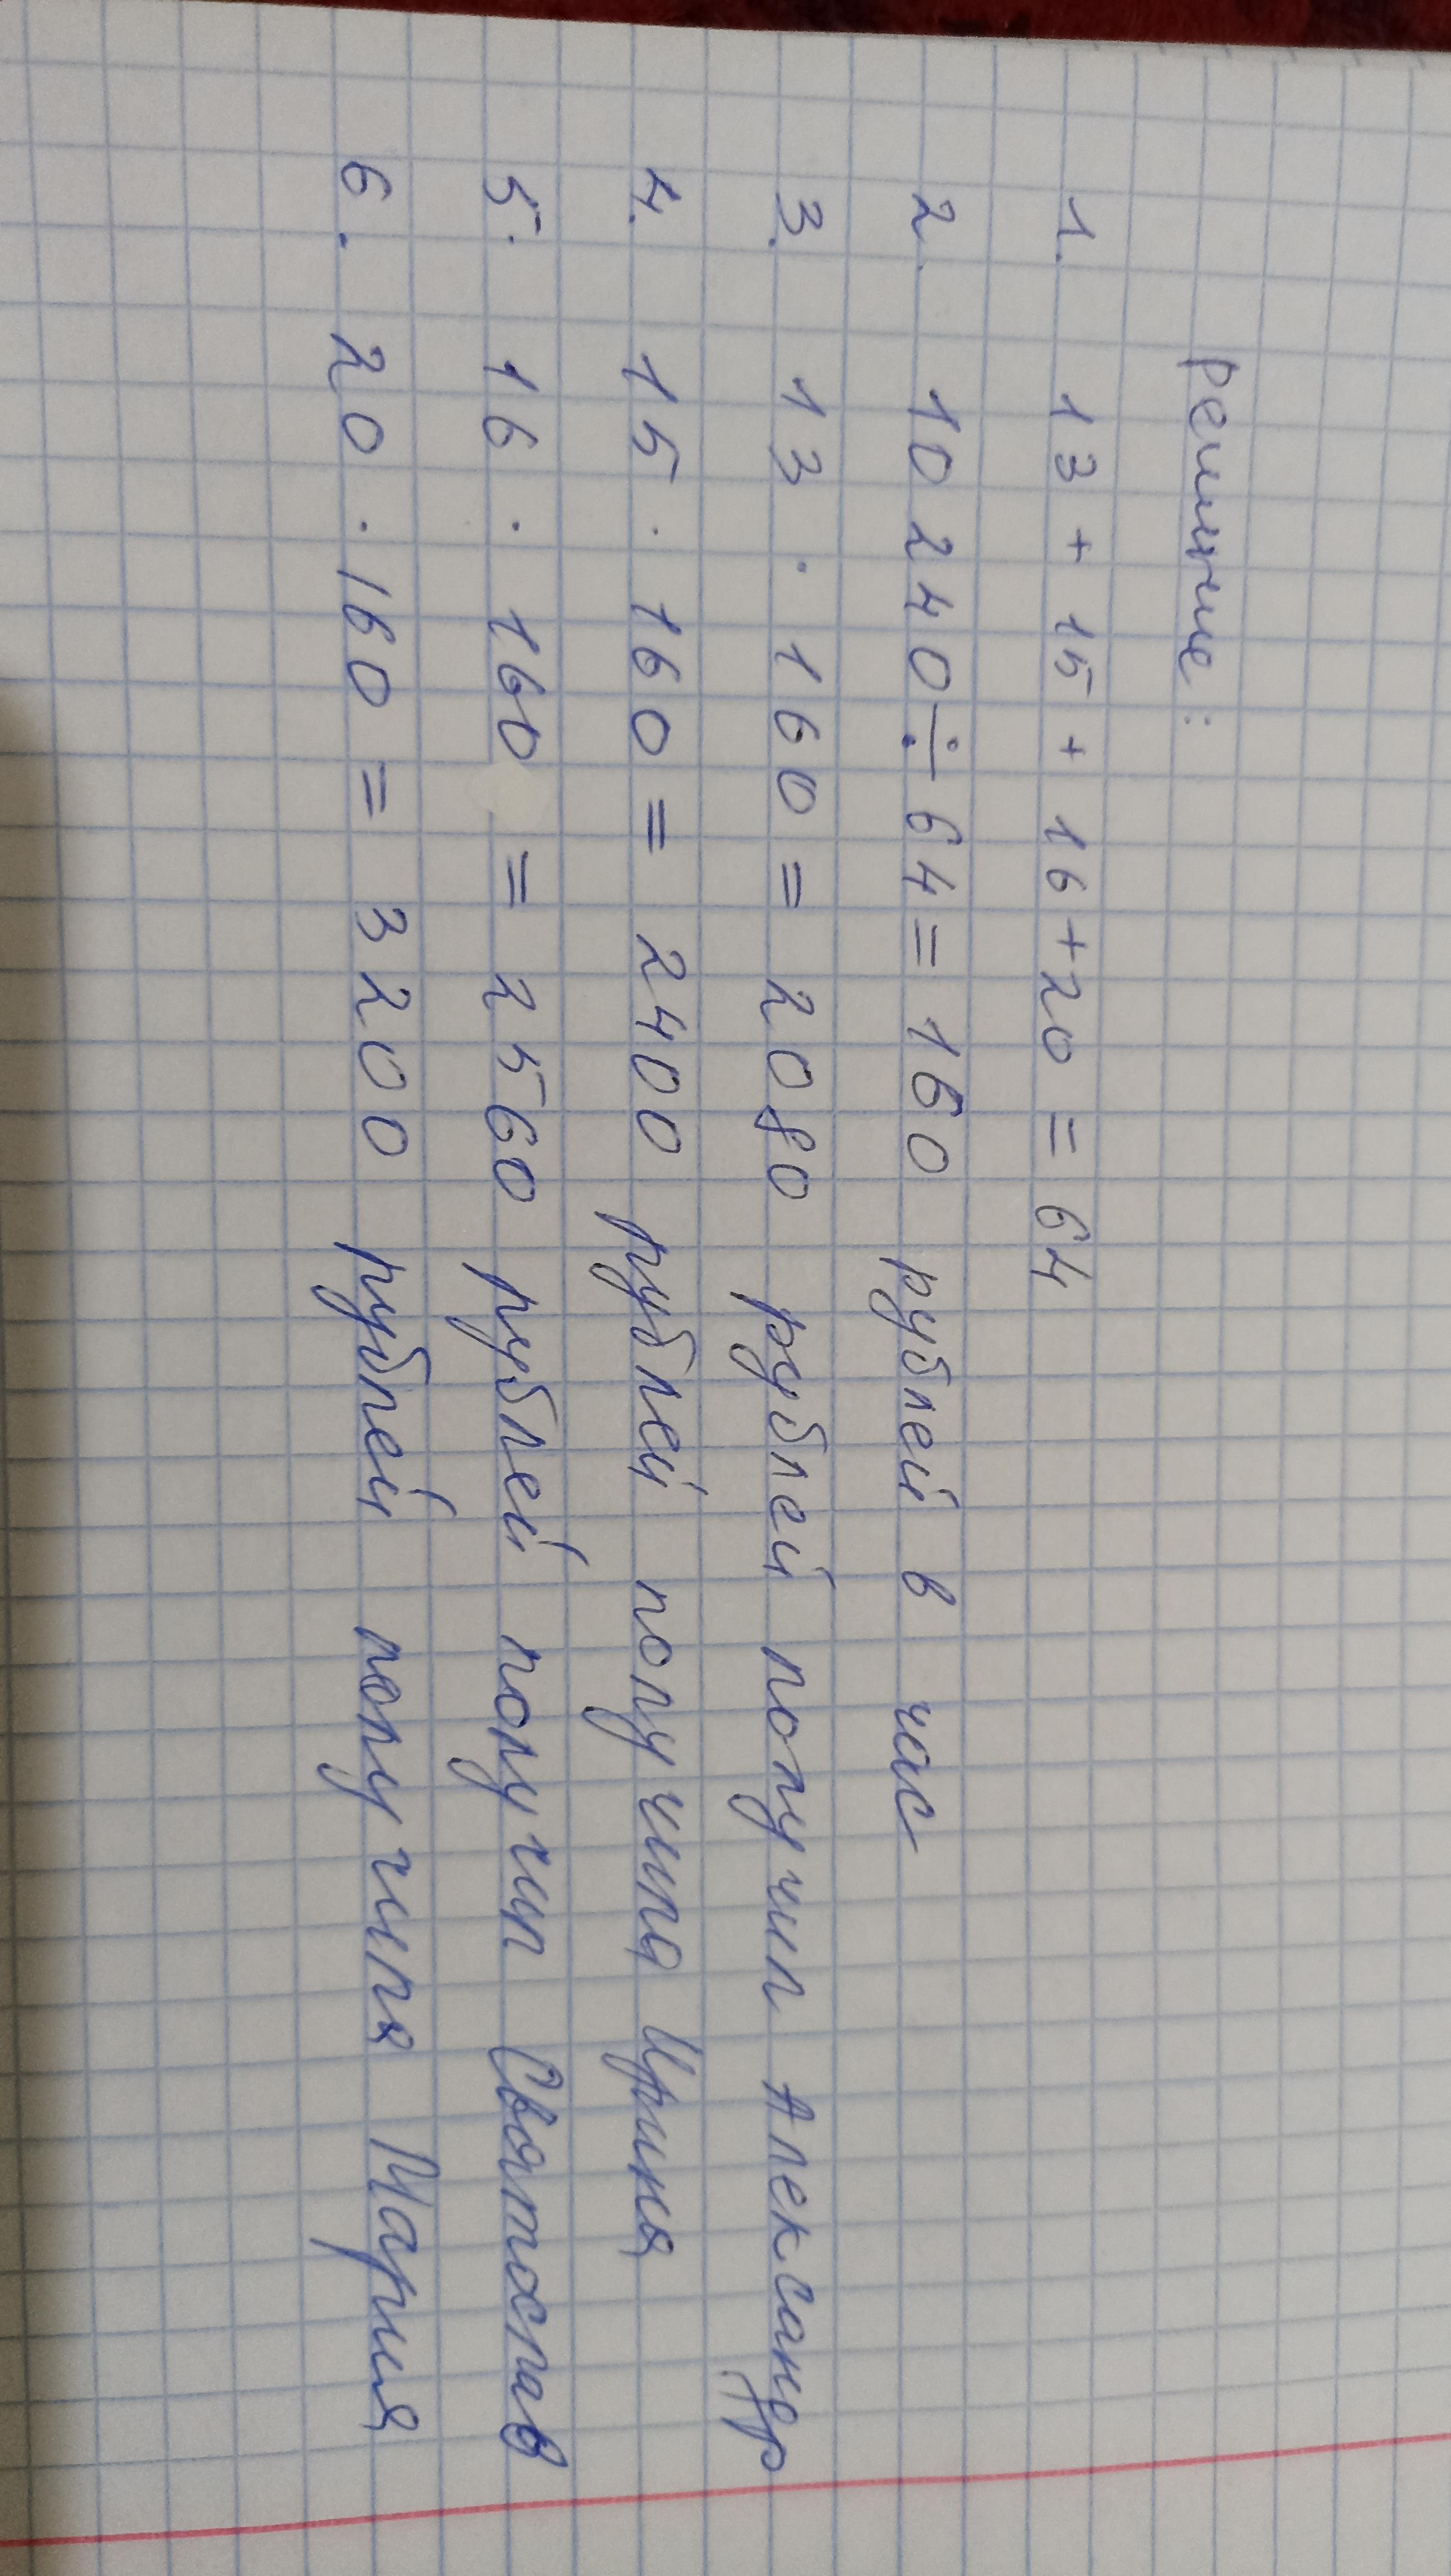 Решение:
1. 13 + 15 + 16 + 20 = 64
2. 10 240 ÷ 64 = 160 рублей в час
3. 13 · 160 = 2080 рублей получил Александр
4. 15 · 160 = 2400 рублей получила Ирина
5. 16 · 160 = 2560 рублей получил Святослав
6. 20 · 160 = 3200 рублей получила Мария